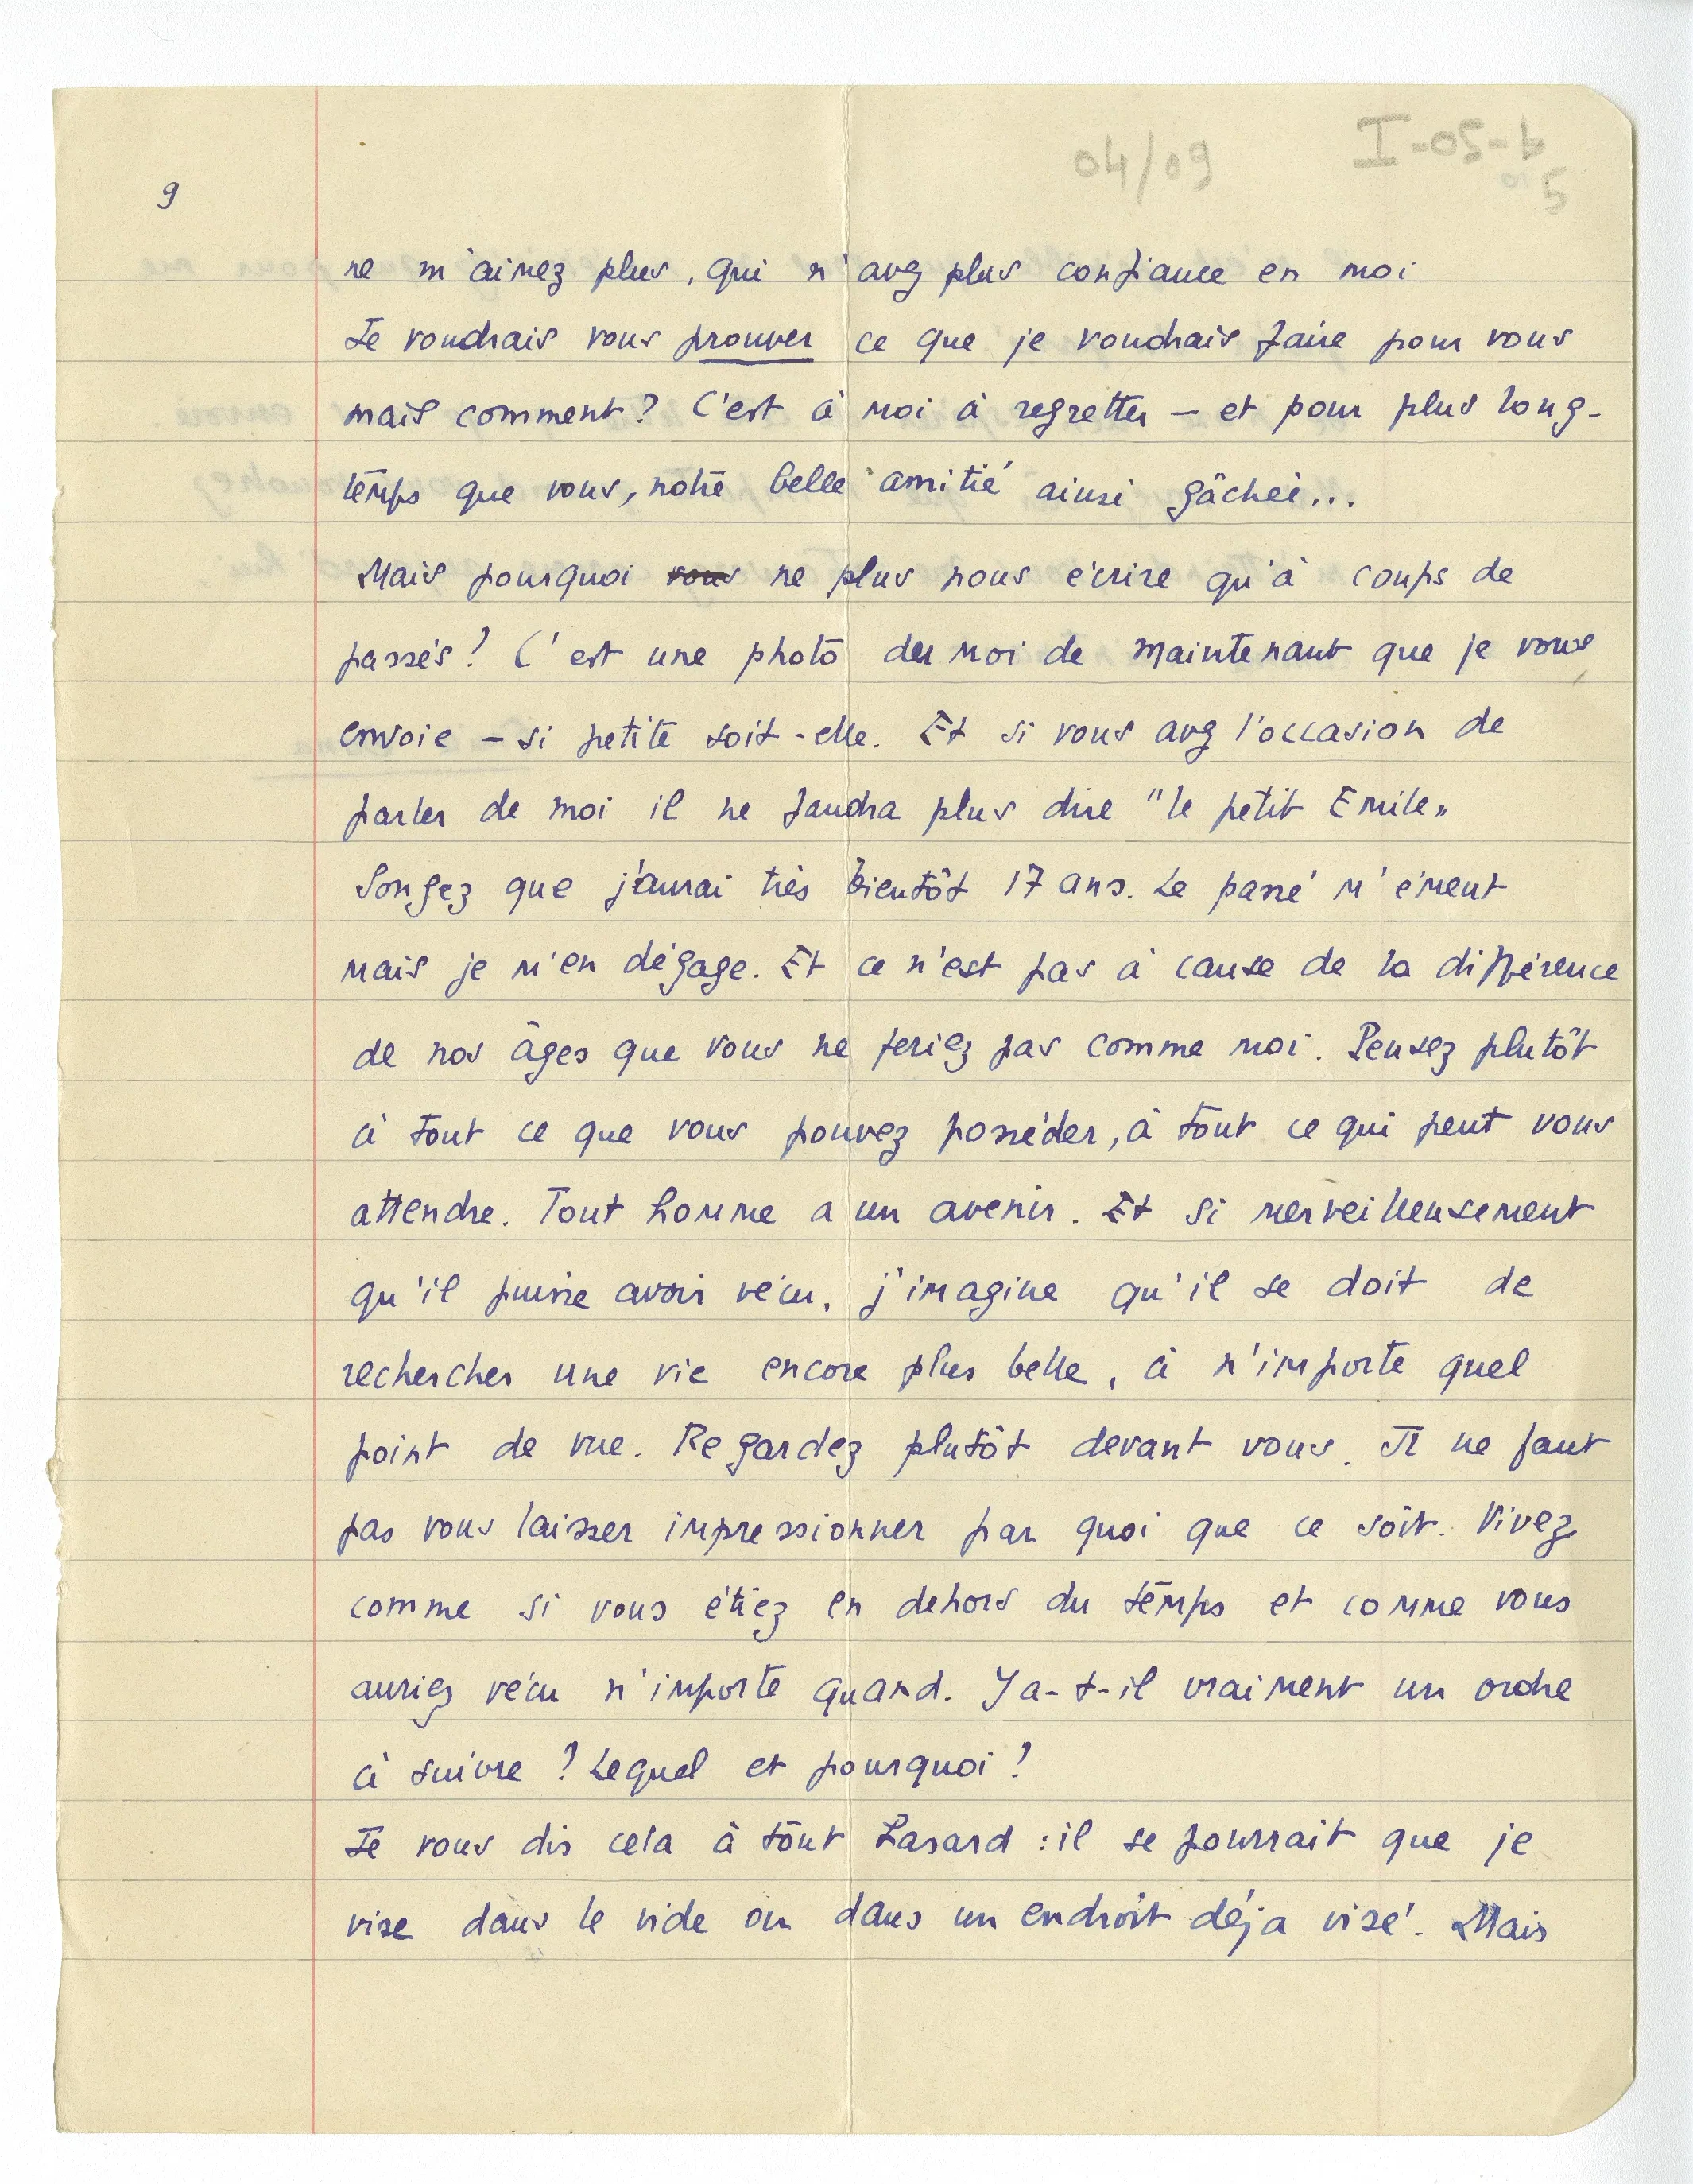 04/09
I-05-b
5
9
ne m'aimez plus, qui n'avez plus confiance en moi
Je voudrais vous prouver ce que je voudrais faire pour vous
mais comment? C'est à moi à regretter – et pour plus long-
temps que vous, notre belle amitié ainsi gâchée...
Mais pourquoi vous ne plus nous écrire qu'à coups de
passés? C'est une photo du moi de maintenant que je vous
envoie – si petite soit-elle. Et si vous avez l'occasion de
parler de moi il ne faudra plus dire "le petit Emile„
Songez que j'aurai très bientôt 17 ans. Le passé m'émeut
mais je m'en dégage. Et ce n'est pas à cause de la différence
de nos âges que vous ne feriez pas comme moi. Pensez plutôt
à tout ce que vous pouvez posséder, à tout ce qui peut vous
attendre. Tout homme a un avenir. Et si merveilleusement
qu'il puisse avoir vécu, j'imagine qu'il se doit de
rechercher une vie encore plus belle, à n'importe quel
point de vue. Regardez plutôt devant vous. Il ne faut
pas vous laisser impressionner par quoi que ce soit. Vivez
comme si vous étiez en dehors du temps et comme vous
auriez vécu n'importe quand. Y a-t-il vraiment un ordre
à suivre? Lequel et pourquoi?
Je vous dis cela à tout hasard : il se pourrait que je
vise dans le vide ou dans un endroit déja visé. Mais